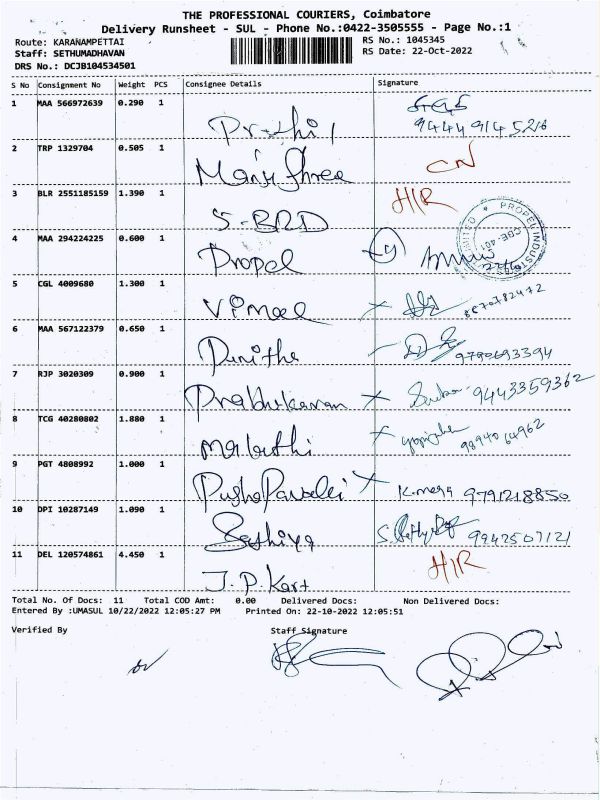 THE PROFESSIONAL COURIERS, Coimbatore
Delivery Runsheet - SUL - Phone No.:0422-3505555 - Page No.:1
Route: KARANAMPETTAI
RS No.: 1045345
Staff: SETHUMADHAVAN
RS Date: 22-Oct-2022
DRS No.: DCJB104534501
S No Consignment No Weight PCS Consignee Details Signature
1 MAA 566972639 0.290 1
94449145216
2 TRP 1329704 0.505 1
Manju Shree CN
3 BLR 2551185159 1.390 1 H/R
S-BRD
PROPEL INDUSTRIES
4 MAA 294224225 0.600 1
Propel
5 CGL 4009680 1.300 1
Vimal
6 MAA 567122379 0.650 1
Punitha
7 RJP 3020309 0.900 1
Prabhukaran 9443359362
8 TCG 40280802 1.880 1
Maruthi 9894064962
9 PGT 4808992 1.000 1
9791218850
10 DPI 10287149 1.090 1
Sathiya 9942507121
11 DEL 120574861 4.450 1 H/R
J.P. Kart
Total No. Of Docs: 11 Total COD Amt: 0.00 Delivered Docs: Non Delivered Docs:
Entered By :UMASUL 10/22/2022 12:05:27 PM Printed On: 22-10-2022 12:05:51
Verified By Staff Signature